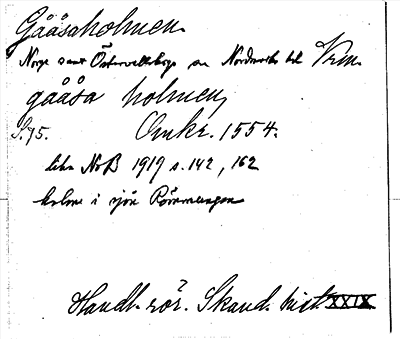 Gååsaholmen
Norge samt Östervallskog sn Nordmarks hd Vrm.
gååsa holmen,
S. 75. Omkr. 1554.
likn NoB 1919 s. 142, 162
holme i sjön Römmungen
Handl. rör. Skand. hist. XXIX